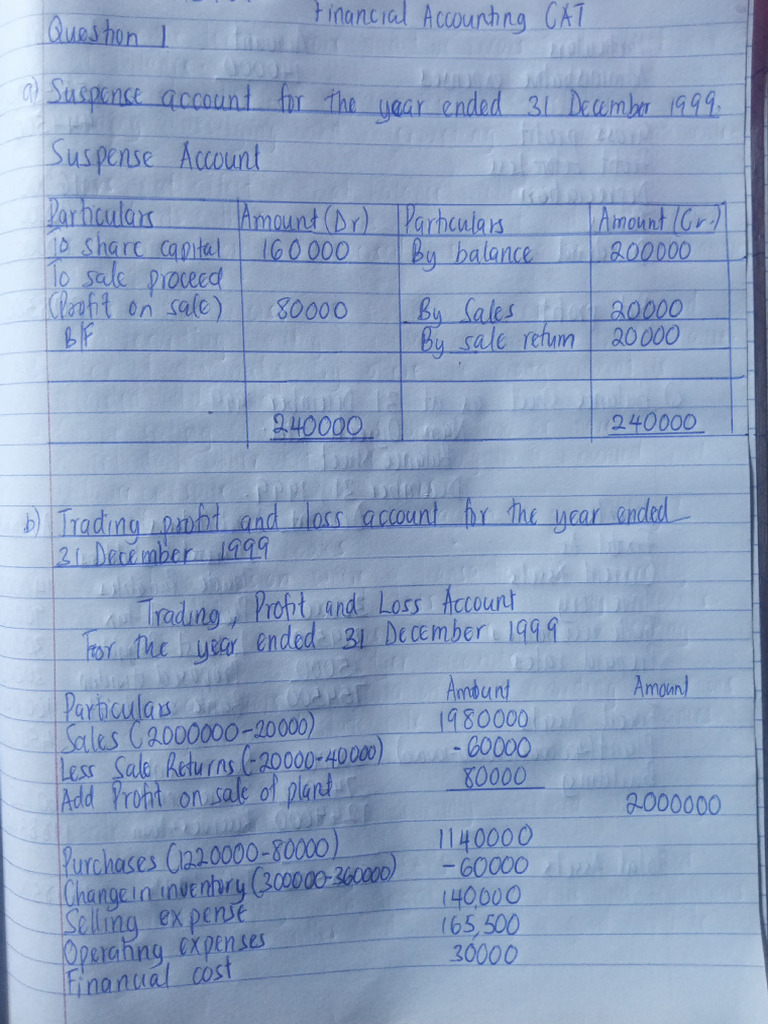 Financial Accounting CAT
Question 1
a) Suspense account for the year ended 31 December 1999.
Suspense Account
Particulars Amount (Dr) Particulars Amount (Cr.)
To share capital 160000 By balance 200000
To sale proceed
(Profit on sale) 80000 By Sales 20000
B/F By sale return 20000
240000 240000
b) Trading profit and loss account for the year ended
31 December 1999
Trading, Profit and Loss Account
For the year ended 31 December 1999
Particulars Amount Amount
Sales (2000000-20000) 1980000
Less Sale Returns (-20000-40000) -60000
Add Profit on sale of plant 80000
2000000
Purchases (1220000-80000) 1140000
Change in inventory (300000-360000) -60000
Selling expense 140,000
Operating expenses 165,500
Financial cost 30000